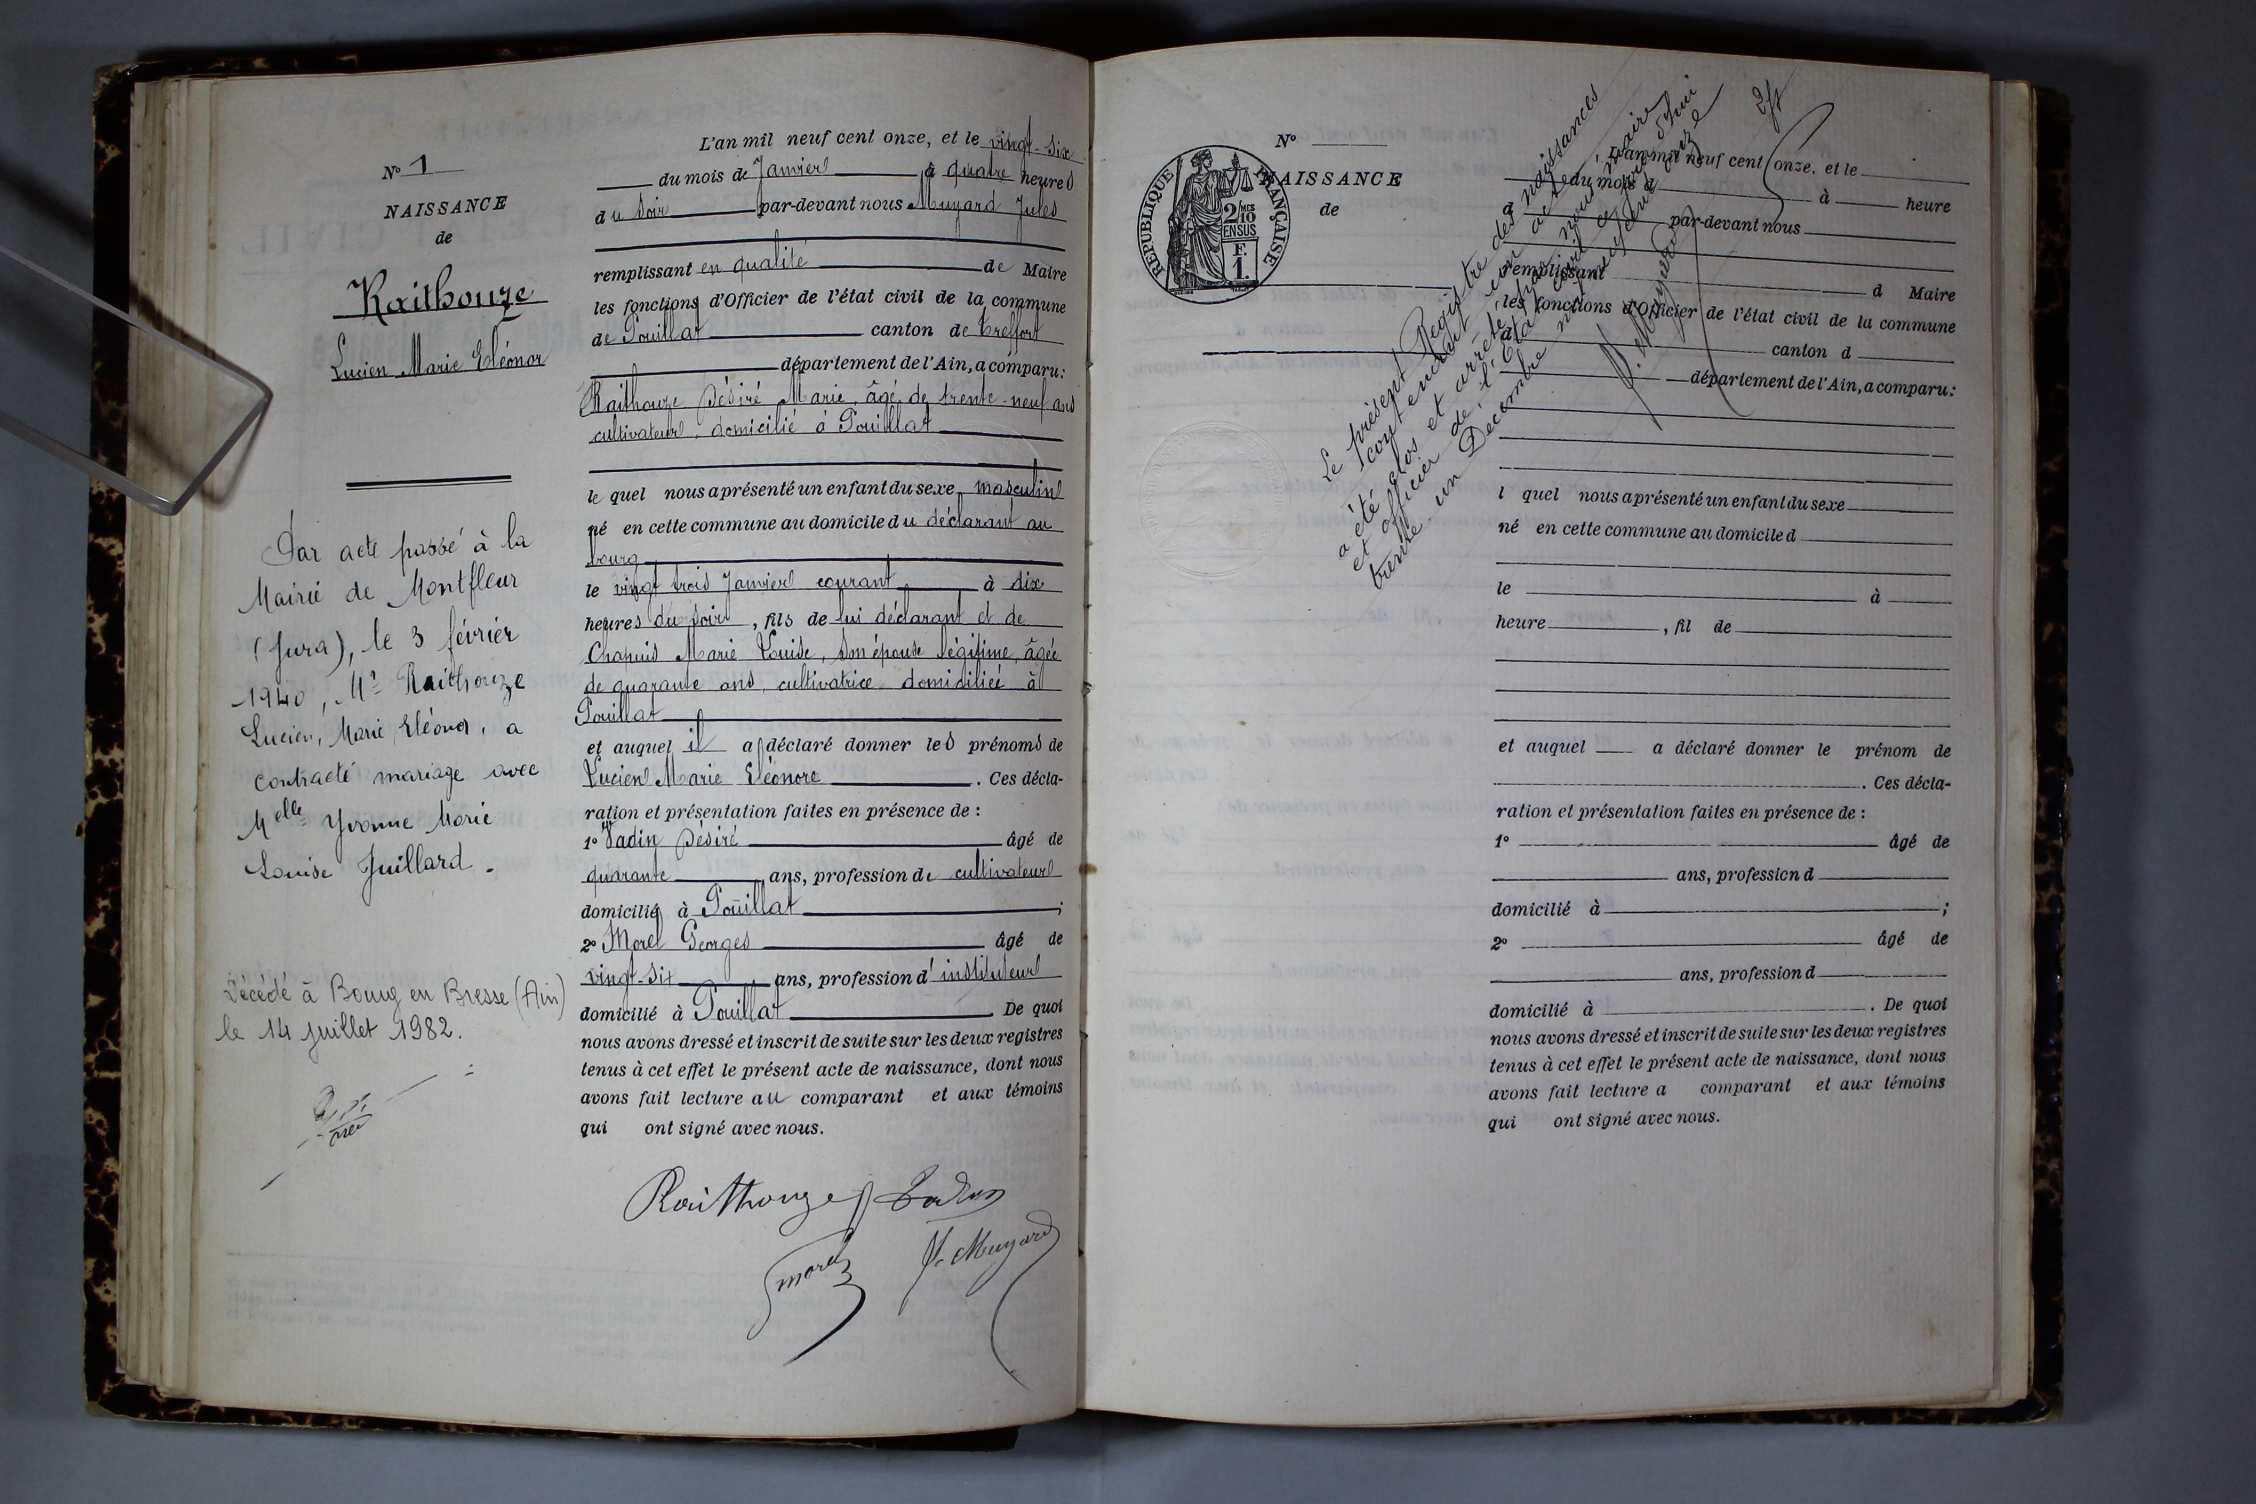 N° 1
NAISSANCE
de
Raithouze
Lucien Marie Eléonor
Par acte passé à la
Mairie de Montfleur
(Jura), le 3 février
1940, Mr Raithouze
Lucien, Marie, Eléonor, a
contracté mariage avec
Melle Yvonne Marie
Louise Juillard.
Décédé à Bourg en Bresse (Ain)
le 14 juillet 1982.
L'an mil neuf cent onze, et le vingt-six
du mois de Janvier à quatre heures
du soir par-devant nous Muyard Jules
remplissant en qualité de Maire
les fonctions d'Officier de l'état civil de la commune
de Pouillat canton de Treffort
département de l'Ain, a comparu:
Raithouze Désiré Marie, âgé de trente-neuf ans
cultivateur, domicilié à Pouillat
le quel nous a présenté un enfant du sexe masculin
né en cette commune au domicile du déclarant au
bourg
le vingt trois Janvier courant à dix
heures du soir, fils de lui déclarant et de
Chapuis Marie Louise, son épouse légitime, âgée
de quarante ans, cultivatrice domiciliée à
Pouillat
et auquel il a déclaré donner les prénoms de
Lucien Marie Eléonore. Ces décla-
ration et présentation faites en présence de :
1° Vadin Désiré âgé de
quarante ans, profession de cultivateur
domicilié à Pouillat ;
2° Morel Georges âgé de
vingt-six ans, profession d'instituteur
domicilié à Pouillat De quoi
nous avons dressé et inscrit de suite sur les deux registres
tenus à cet effet le présent acte de naissance, dont nous
avons fait lecture au comparant et aux témoins
qui ont signé avec nous.
Raithouze
Morel
J. Muyard
N°
NAISSANCE
de
REPUBLIQUE FRANÇAISE
2/10 MES
EN SUS
F.
1.
Le présent Registre des naissances
contenant un acte
a été clos et arrêté par nous maire
et officier de l'Etat civil ce jourd'hui
trente un Décembre mil neuf cent onze
J. Muyard
L'an mil neuf cent onze, et le
du mois d à heure
d par-devant nous
remplissant d Maire
les fonctions d'Officier de l'état civil de la commune
d canton d
département de l'Ain, a comparu:
l quel nous a présenté un enfant du sexe
né en cette commune au domicile d
le à
heure , fil de
et auquel a déclaré donner le prénom de
. Ces décla-
ration et présentation faites en présence de :
1° âgé de
ans, profession d
domicilié à ;
2° âgé de
ans, profession d
domicilié à . De quoi
nous avons dressé et inscrit de suite sur les deux registres
tenus à cet effet le présent acte de naissance, dont nous
avons fait lecture a comparant et aux témoins
qui ont signé avec nous.